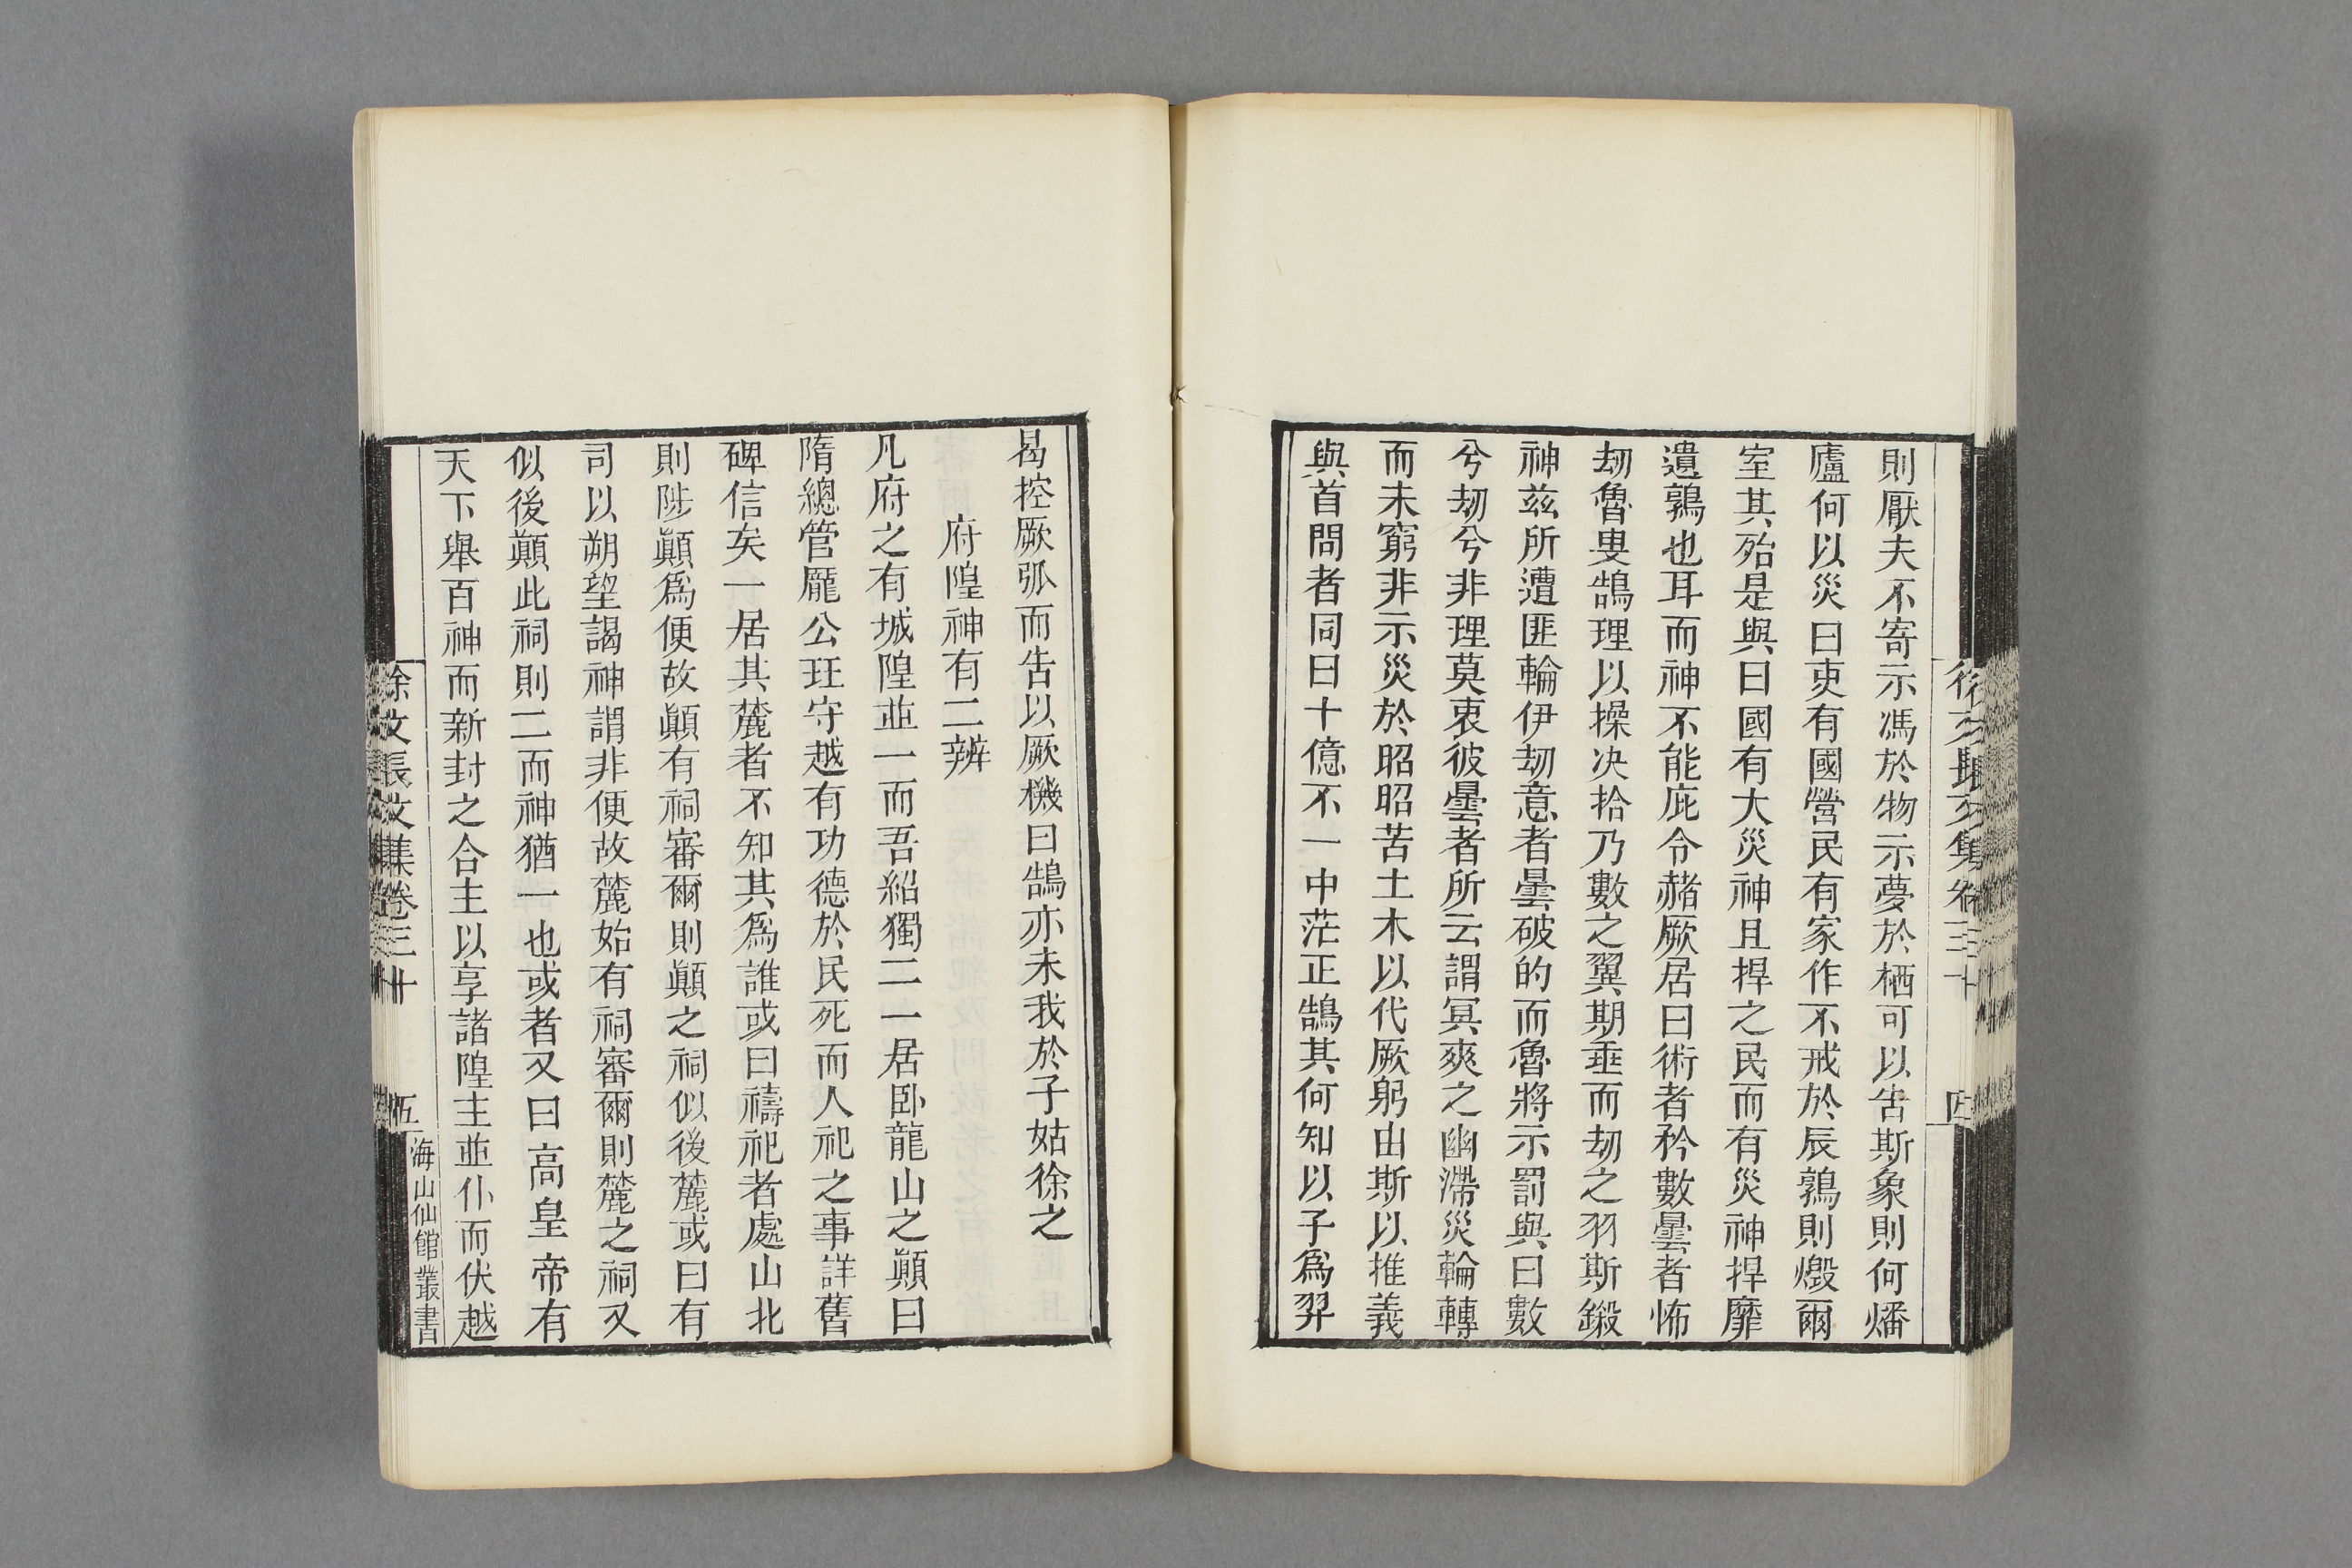 則厭夫不寄示馮於物示夢於栖可以告斯象則何燔
廬何以災曰吏有國營民有家作不戒於辰鶉則燬爾
室其殆是與曰國有大災神且捍之民而有災神捍靡
遺鶉也耳而神不能庇令赭厥居曰術者矜數曇者怖
劫魯叟鵠理以操决拾乃數之翼期垂而劫之羽斯鎩
神兹所遭匪輪伊劫意者曇破的而魯將示罰與曰數
兮劫兮非理莫衷彼曇者所云謂冥爽之幽滯災輪轉
而未窮非示災於昭昭苦土木以代厥躬由斯以推義
與首問者同曰十億不一中茫正鵠其何知以子爲羿
曷控厥弧而告以厥機曰鵠亦未我於子姑徐之
府隍神有二辨
凡府之有城隍並一而吾紹獨二一居卧龍山之顚曰
隋總管龎公玨守越有功德於民死而人祀之事詳舊
碑信矣一居其麓者不知其爲誰或曰禱祀者處山北
則陟顚爲便故顚有祠審爾則顚之祠似後麓或曰有
司以朔望謁神謂非便故麓始有祠審爾則麓之祠又
似後顚此祠則二而神猶一也或者又曰高皇帝有
天下舉百神而新封之合主以享諸隍主並仆而伏越
徐文長文集卷三十
五
海山仙館叢書